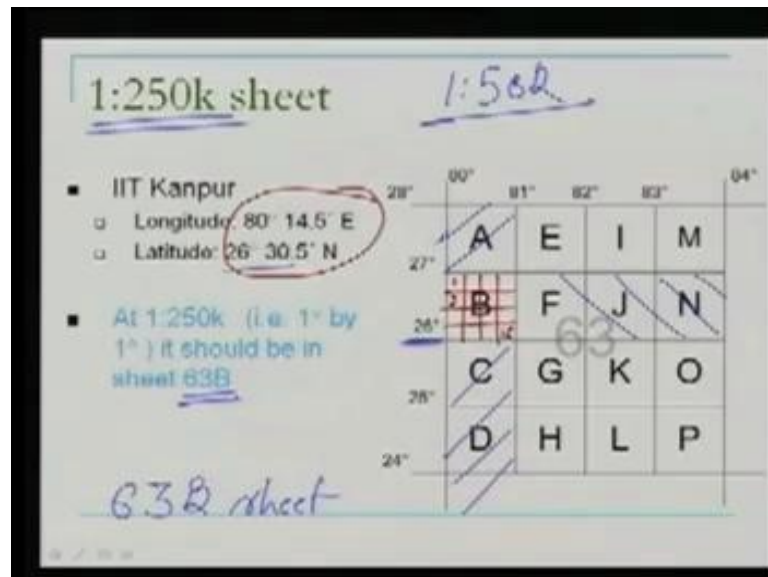 1:250k sheet
1:50k
IIT Kanpur
Longitude: 80° 14.5' E
Latitude: 26° 30.5' N
At 1:250k (i.e. 1° by
1°) it should be in
sheet 63B
63B sheet
80° 81° 82° 83° 84°
28°
A E I M
27°
B F J N
26°
63
C G K O
25°
D H L P
24°